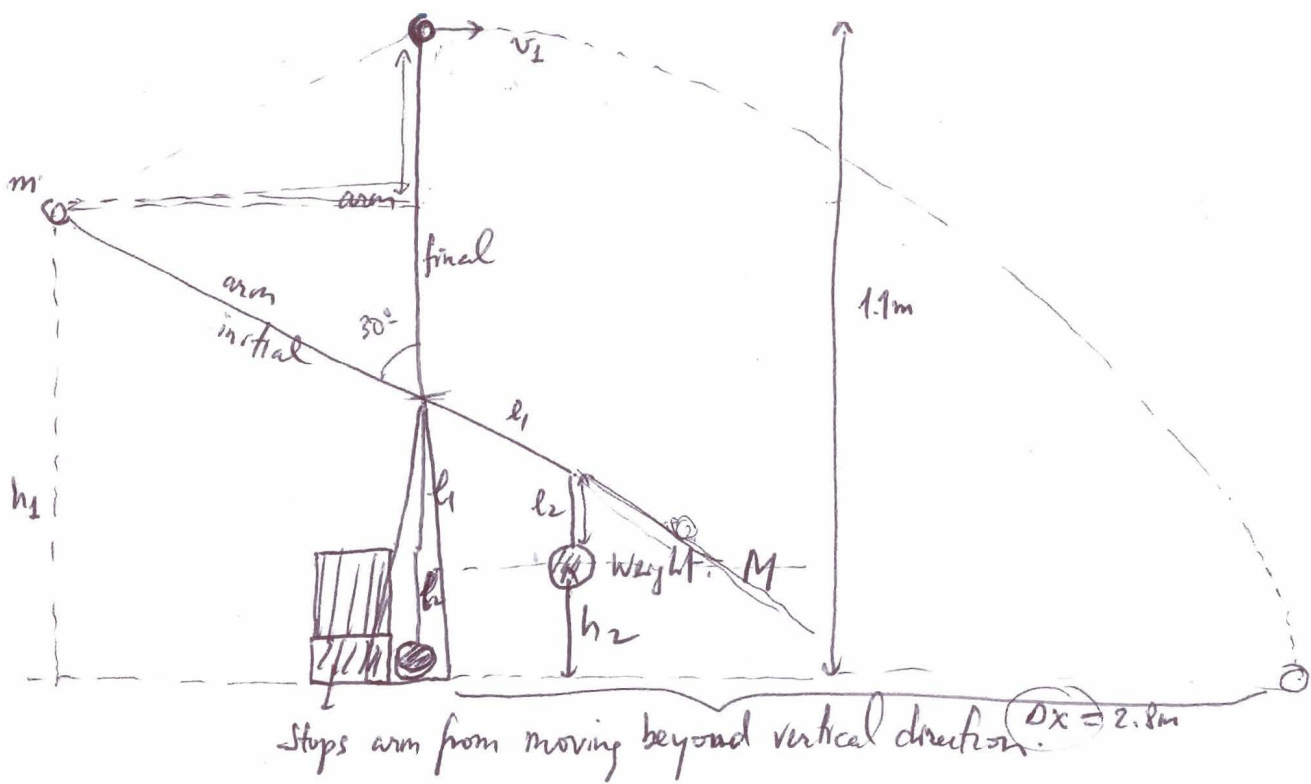 v1
m
arm
final
arm
initial
30°
1.1m
l1
h1
l1
l2
l2
Weight. M
h2
Stops arm from moving beyond vertical direction.
Δx = 2.8m